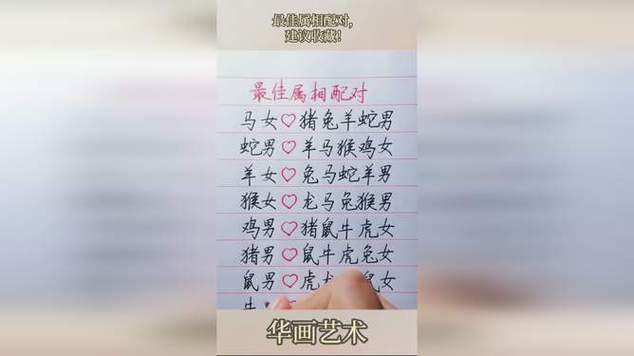 最佳属相配对,
建议收藏!
最佳属相配对
马女♡猪兔羊蛇男
蛇男♡羊马猴鸡女
羊女♡兔马蛇羊男
猴女♡龙马兔猴男
鸡男♡猪鼠牛虎女
猪男♡鼠牛虎兔女
鼠男♡虎龙 鼠女
牛
华画艺术